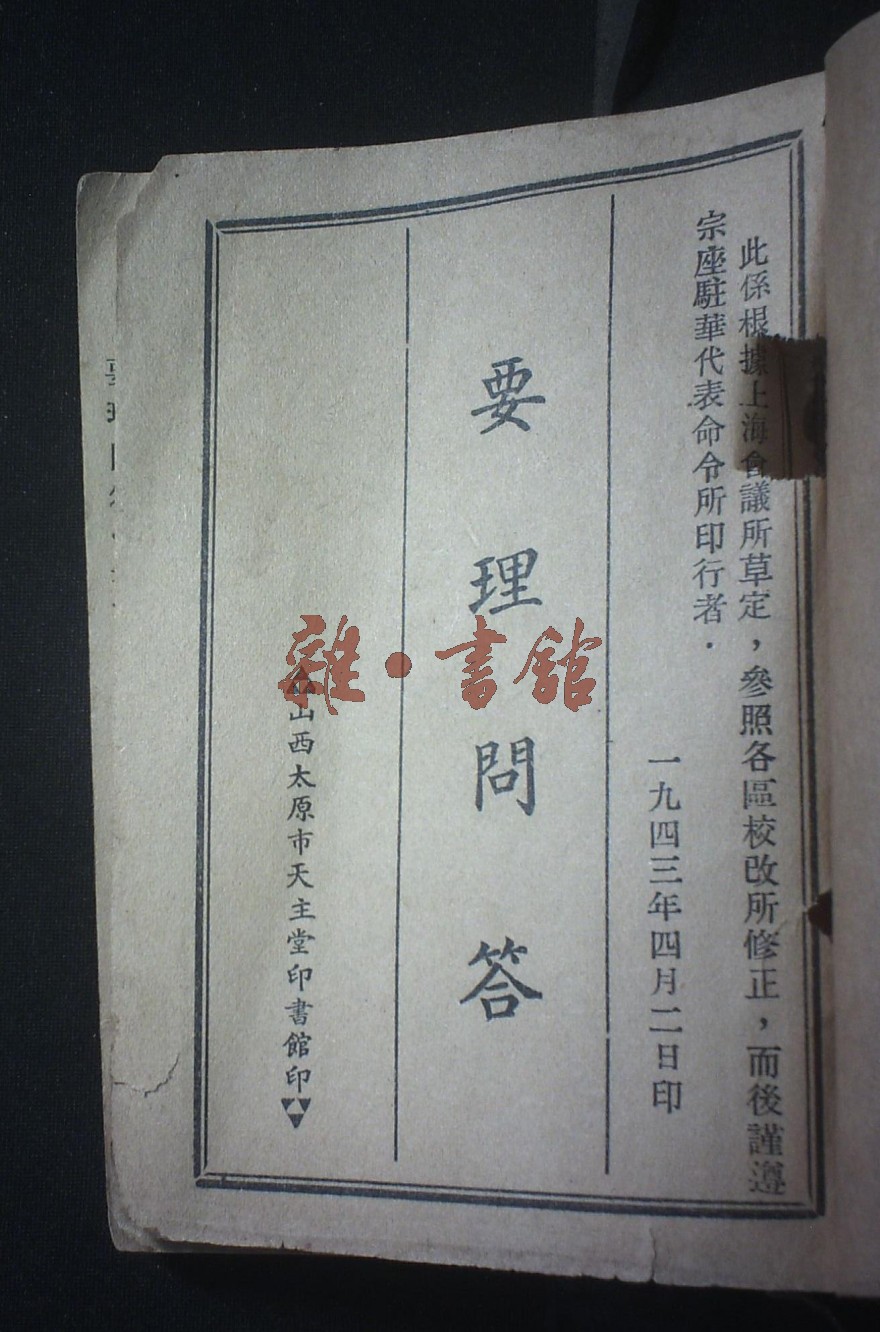 此係根據上海會議所草定，參照各區校改所修正，而後謹遵
宗座駐華代表命令所印行者．
一九四三年四月二日印
要理問答
山西太原市天主堂印書館印
雜·書館